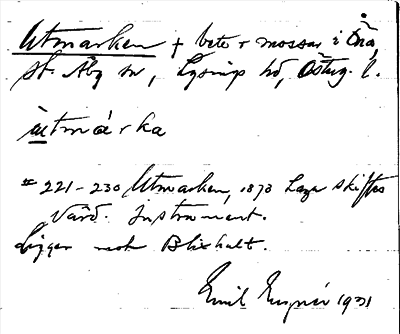 Utmarken + bete o mossar i Öna,
St. Åby sn, Lysings hd, Östg. l.
ùtmárka
# 221-230 Utmarken, 1873 Laga skiftes
Värd. Instrument.
Ligger mot Blixhult.
Emil 1931